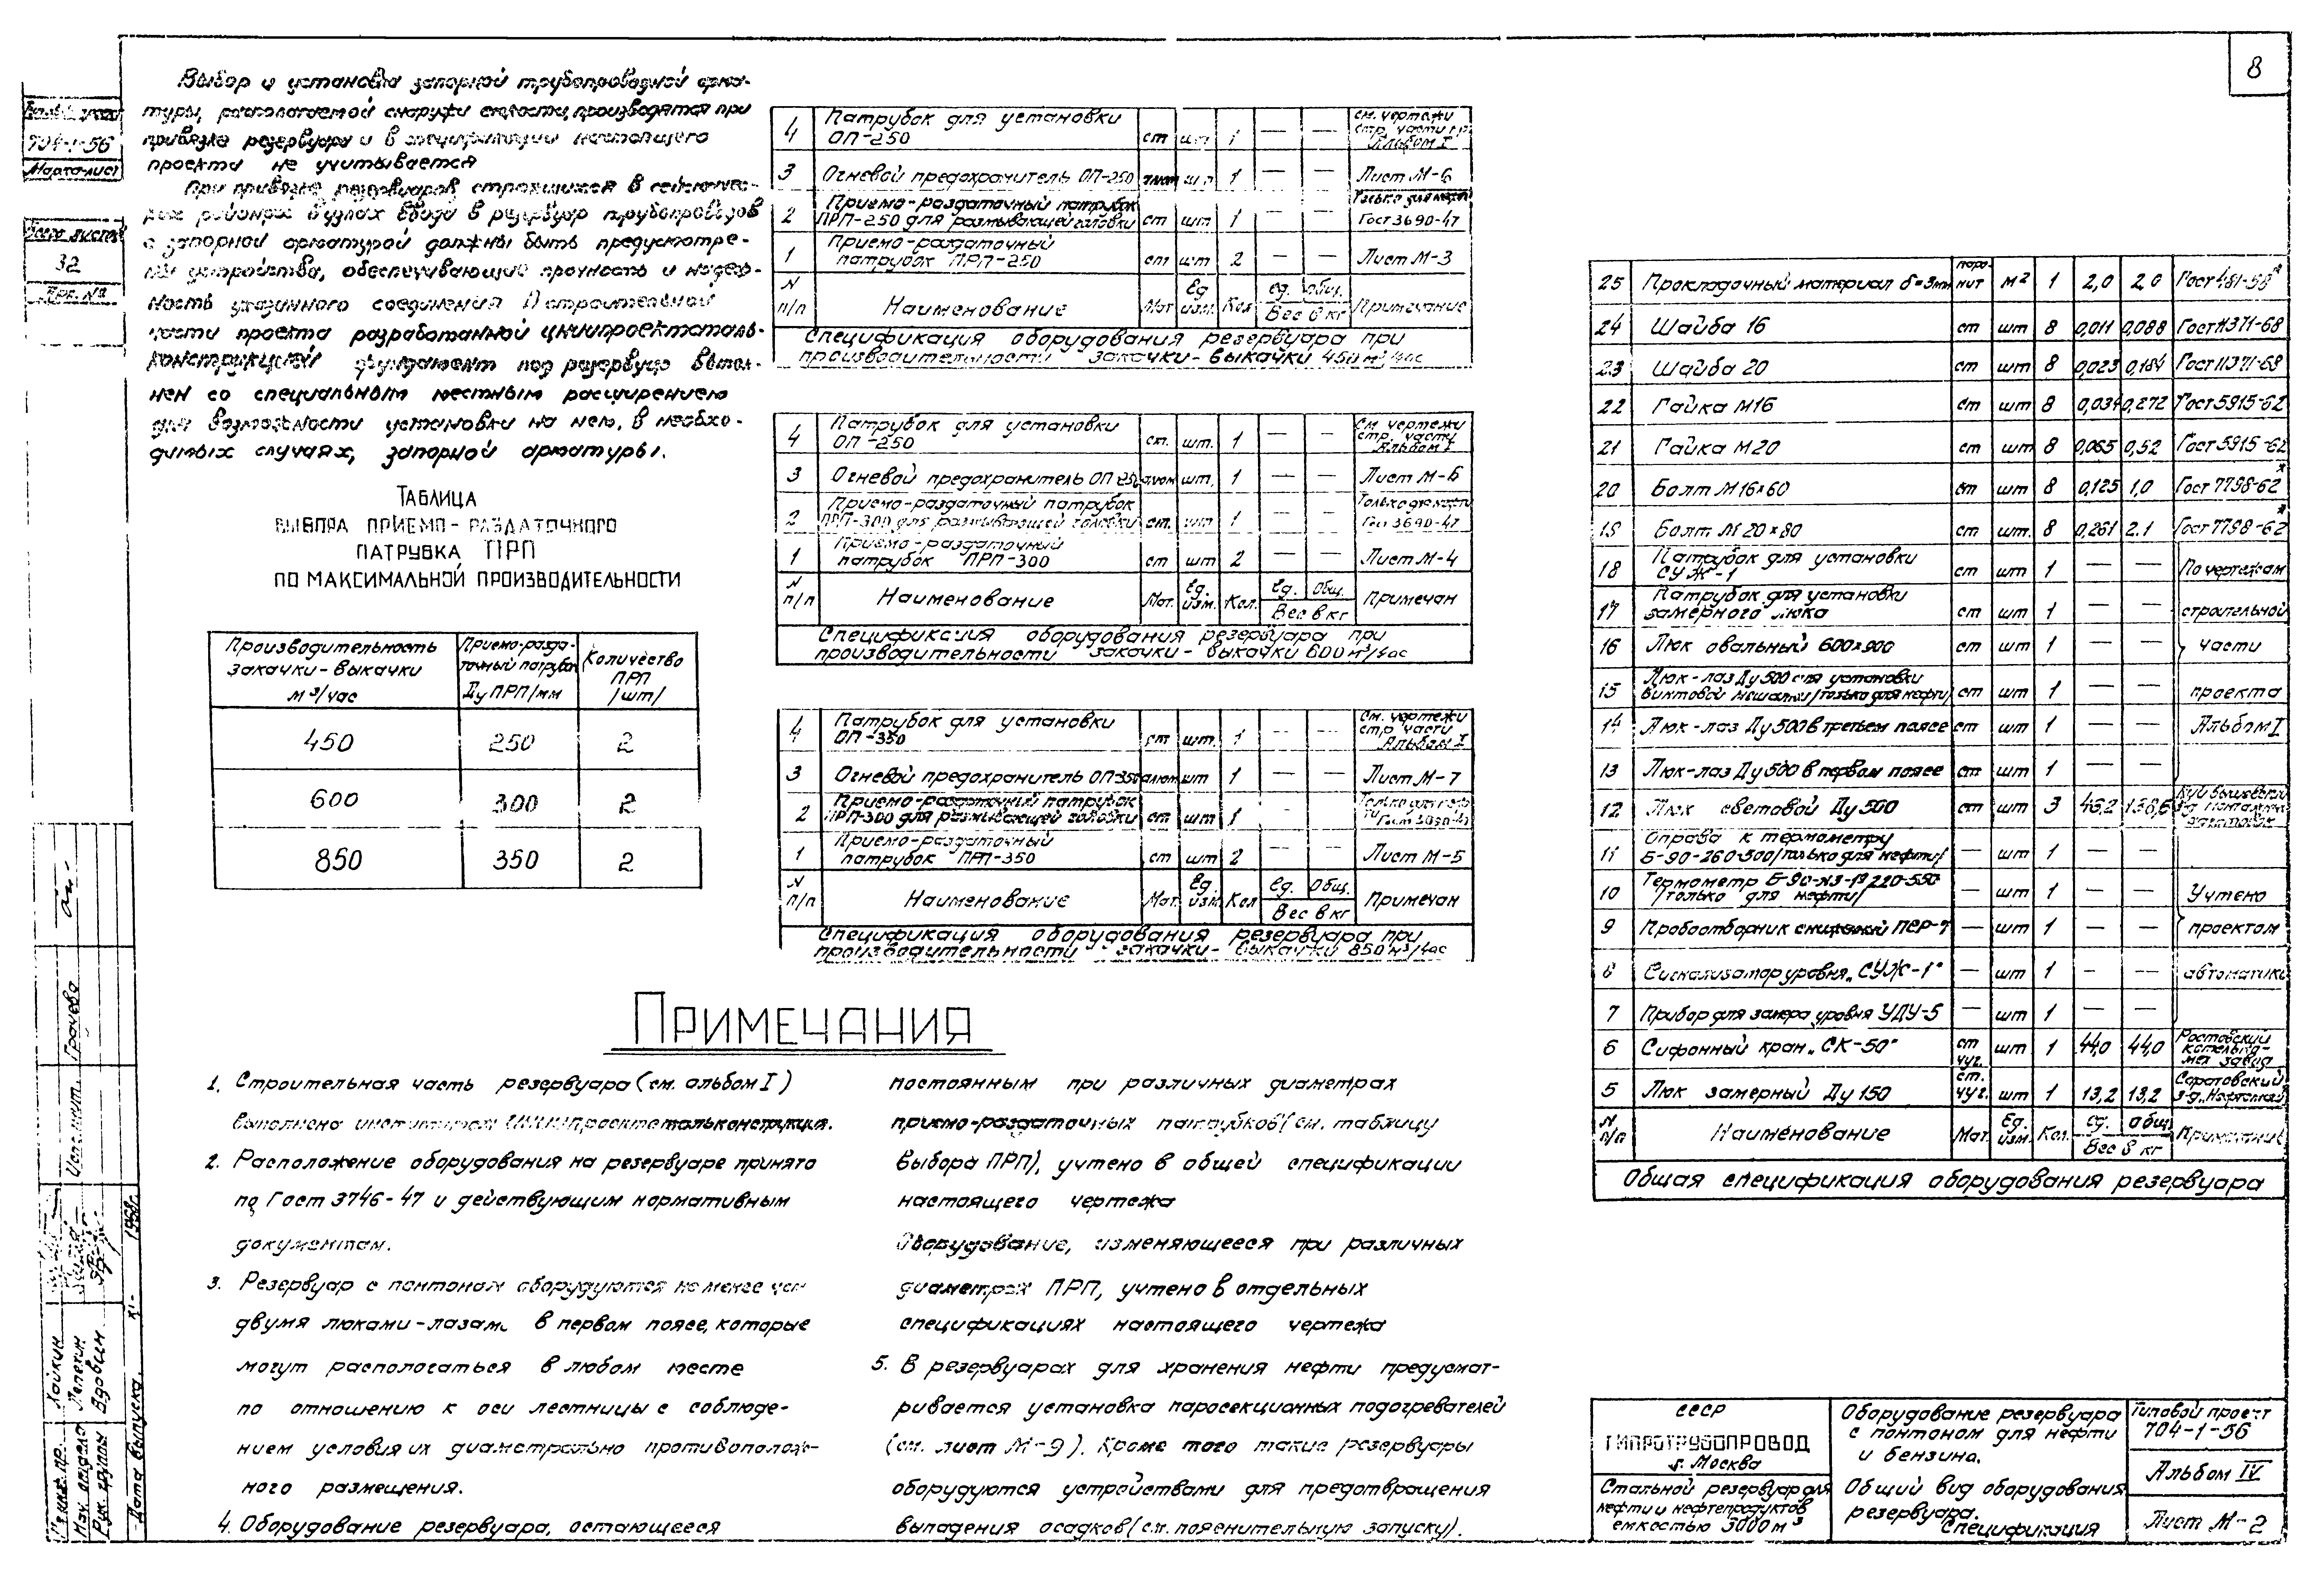 8
Выбор и установка запорной трубопроводной арма-
туры, располагаемой снаружи емкости, производятся при
привязке резервуара и в спецификации настоящего
проекта не учитывается
При привязке резервуаров, строящихся в сейсмичес-
ких районах в узлах ввода в резервуар трубопроводов
с запорной арматурой должны быть предусмотре-
ны устройства, обеспечивающие прочность и надеж-
ность указанного соединения. В строительной
части проекта разработанной ЦНИИпроектсталь-
конструкцией фундамент под резервуар выпол-
нен со специальным местным расширением
для возможности установки на нем, в необхо-
димых случаях, запорной арматуры.
704-1-56
Марка-лист
Всего листов
32
Таблица
выбора приемо-раздаточного
патрубка ПРП
по максимальной производительности
Производительность закачки-выкачки м³/час | Приемо-разда-точный патрубок Ду ПРП/мм | Количество ПРП /шт/
450 | 250 | 2
600 | 300 | 2
850 | 350 | 2
4 | Патрубок для установки ОП-250 | ст | шт | 1 | — | — | см. чертежи стр. части Альбом I
3 | Огневой предохранитель ОП-250 | алюм | шт | 1 | — | — | Лист М-6
2 | Приемо-раздаточный патрубок ПРП-250 для размывающей головки | ст | шт | 1 | — | — | Только для нефти Гост 3690-47
1 | Приемо-раздаточный патрубок ПРП-250 | ст | шт | 2 | — | — | Лист М-3
N п/п | Наименование | Мат | Ед изм. | Кол | ед. | общ. | Вес в кг | Примечание
Спецификация оборудования резервуара при
производительности закачки-выкачки 450 м³/час
4 | Патрубок для установки ОП-250 | ст. | шт. | 1 | — | — | См чертежи стр. часть Альбом I
3 | Огневой предохранитель ОП 250 | алюм | шт. | 1 | — | — | Лист М-6
2 | Приемо-раздаточный патрубок ПРП-300 для размывающей головки | ст. | шт | 1 | — | — | Только для нефти Гост 3690-47
1 | Приемо-раздаточный патрубок ПРП-300 | ст | шт | 2 | — | — | Лист М-4
N п/п | Наименование | Мат. | Ед. изм. | Кол. | Ед. | Общ. | Вес в кг | Примечан
Спецификация оборудования резервуара при
производительности закачки-выкачки 600 м³/час
4 | Патрубок для установки ОП-350 | ст | шт. | 1 | — | — | См. чертежи стр части Альбом I
3 | Огневой предохранитель ОП-350 | алюм | шт | 1 | — | — | Лист М-7
2 | Приемо-раздаточный патрубок ПРП-300 для размывающей головки | ст | шт | 1 | — | Только для нефти Гост 3690-47
1 | Приемо-раздаточный патрубок ПРП-350 | ст | шт | 2 | — | — | Лист М-5
N п/п | Наименование | Мат. | Ед. изм | Кол | Ед. | Общ. | Вес в кг | Примечан
Спецификация оборудования резервуара при
производительности закачки-выкачки 850 м³/час
25 | Прокладочный материал δ=3мм | паро-нит | м² | 1 | 2,0 | 2,0 | Гост 481-58*
24 | Шайба 16 | ст | шт | 8 | 0,011 | 0,088 | Гост 11371-68
23 | Шайба 20 | ст | шт | 8 | 0,023 | 0,184 | Гост 11371-68
22 | Гайка М16 | ст | шт | 8 | 0,034 | 0,272 | Гост 5915-62
21 | Гайка М20 | ст | шт | 8 | 0,065 | 0,52 | Гост 5915-62
20 | Болт М16×60 | ст | шт | 8 | 0,125 | 1,0 | Гост 7798-62*
19 | Болт М20×80 | ст | шт. | 8 | 0,261 | 2.1 | Гост 7798-62*
18 | Патрубок для установки СУЖ-1 | ст | шт | 1 | — | — | По чертежам
17 | Патрубок для установки замерного люка | ст | шт | 1 | — | — | строительной
16 | Люк овальный 600×900 | ст | шт | 1 | — | — | части
15 | Люк-лаз Ду 500 для установки винтовой мешалки /только для нефти/ | ст | шт | 1 | — | — | проекта
14 | Люк-лаз Ду 500 в третьем поясе | ст | шт | 1 | — | — | Альбом I
13 | Люк-лаз Ду 500 в первом поясе | ст | шт | 1 | — | —
12 | Люк световой Ду 500 | ст | шт | 3 | 43,2 | Куйбышевский з-д монтажных заготовок
11 | Оправа к термометру Б-90-260-500 /только для нефти/ | — | шт | 1 | — | —
10 | Термометр /только для нефти/ | — | шт | 1 | — | — | Учтено
9 | Пробоотборник сниженный ПСР-7 | — | шт | 1 | — | — | проектом
8 | Сигнализатор уровня „СУЖ-1" | — | шт | 1 | — | — | автоматики
7 | Прибор для замера уровня УДУ-5 | — | шт | 1 | — | —
6 | Сифонный кран „СК-50" | ст чуг. | шт | 1 | 44,0 | 44,0 | Ростовский завод
5 | Люк замерный Ду 150 | ст. чуг. | шт | 1 | 13,2 | 13,2 | Саратовский з-д
N п/п | Наименование | Мат. | Ед. изм. | Кол. | ед. | общ | Вес в кг | Примечание
Общая спецификация оборудования резервуара
Примечания
1. Строительная часть резервуара (см. альбом I)
выполнена институтом ЦНИИпроектстальконструкция.
2. Расположение оборудования на резервуаре принято
по Гост 3746-47 и действующим нормативным
документам.
3. Резервуар с понтоном оборудуются не менее чем
двумя люками-лазами в первом поясе, которые
могут располагаться в любом месте
по отношению к оси лестницы с соблюде-
нием условия их диаметрально противополож-
ного размещения.
4. Оборудование резервуара, остающееся
постоянным при различных диаметрах
приемо-раздаточных патрубков (см. таблицу
выбора ПРП), учтено в общей спецификации
настоящего чертежа
Оборудование, изменяющееся при различных
диаметрах ПРП, учтено в отдельных
спецификациях настоящего чертежа
5. В резервуарах для хранения нефти предусмат-
ривается установка паросекционных подогревателей
(см. лист М-9). Кроме того такие резервуары
оборудуются устройствами для предотвращения
выпадения осадков (см. пояснительную запуску).
СССР
ГИПРОТРУБОПРОВОД
г. Москва
Стальной резервуар для
нефти и нефтепродуктов
емкостью 3000 м³
Оборудование резервуара
с понтоном для нефти
и бензина.
Общий вид оборудования
резервуара.
Спецификация
Типовой проект
704-1-56
Альбом IV
Лист М-2
Нач. отдела
Рук. группы Вдовин
Исполнит. Грачева
Дата выпуска XI- 1968г.
Хайкин